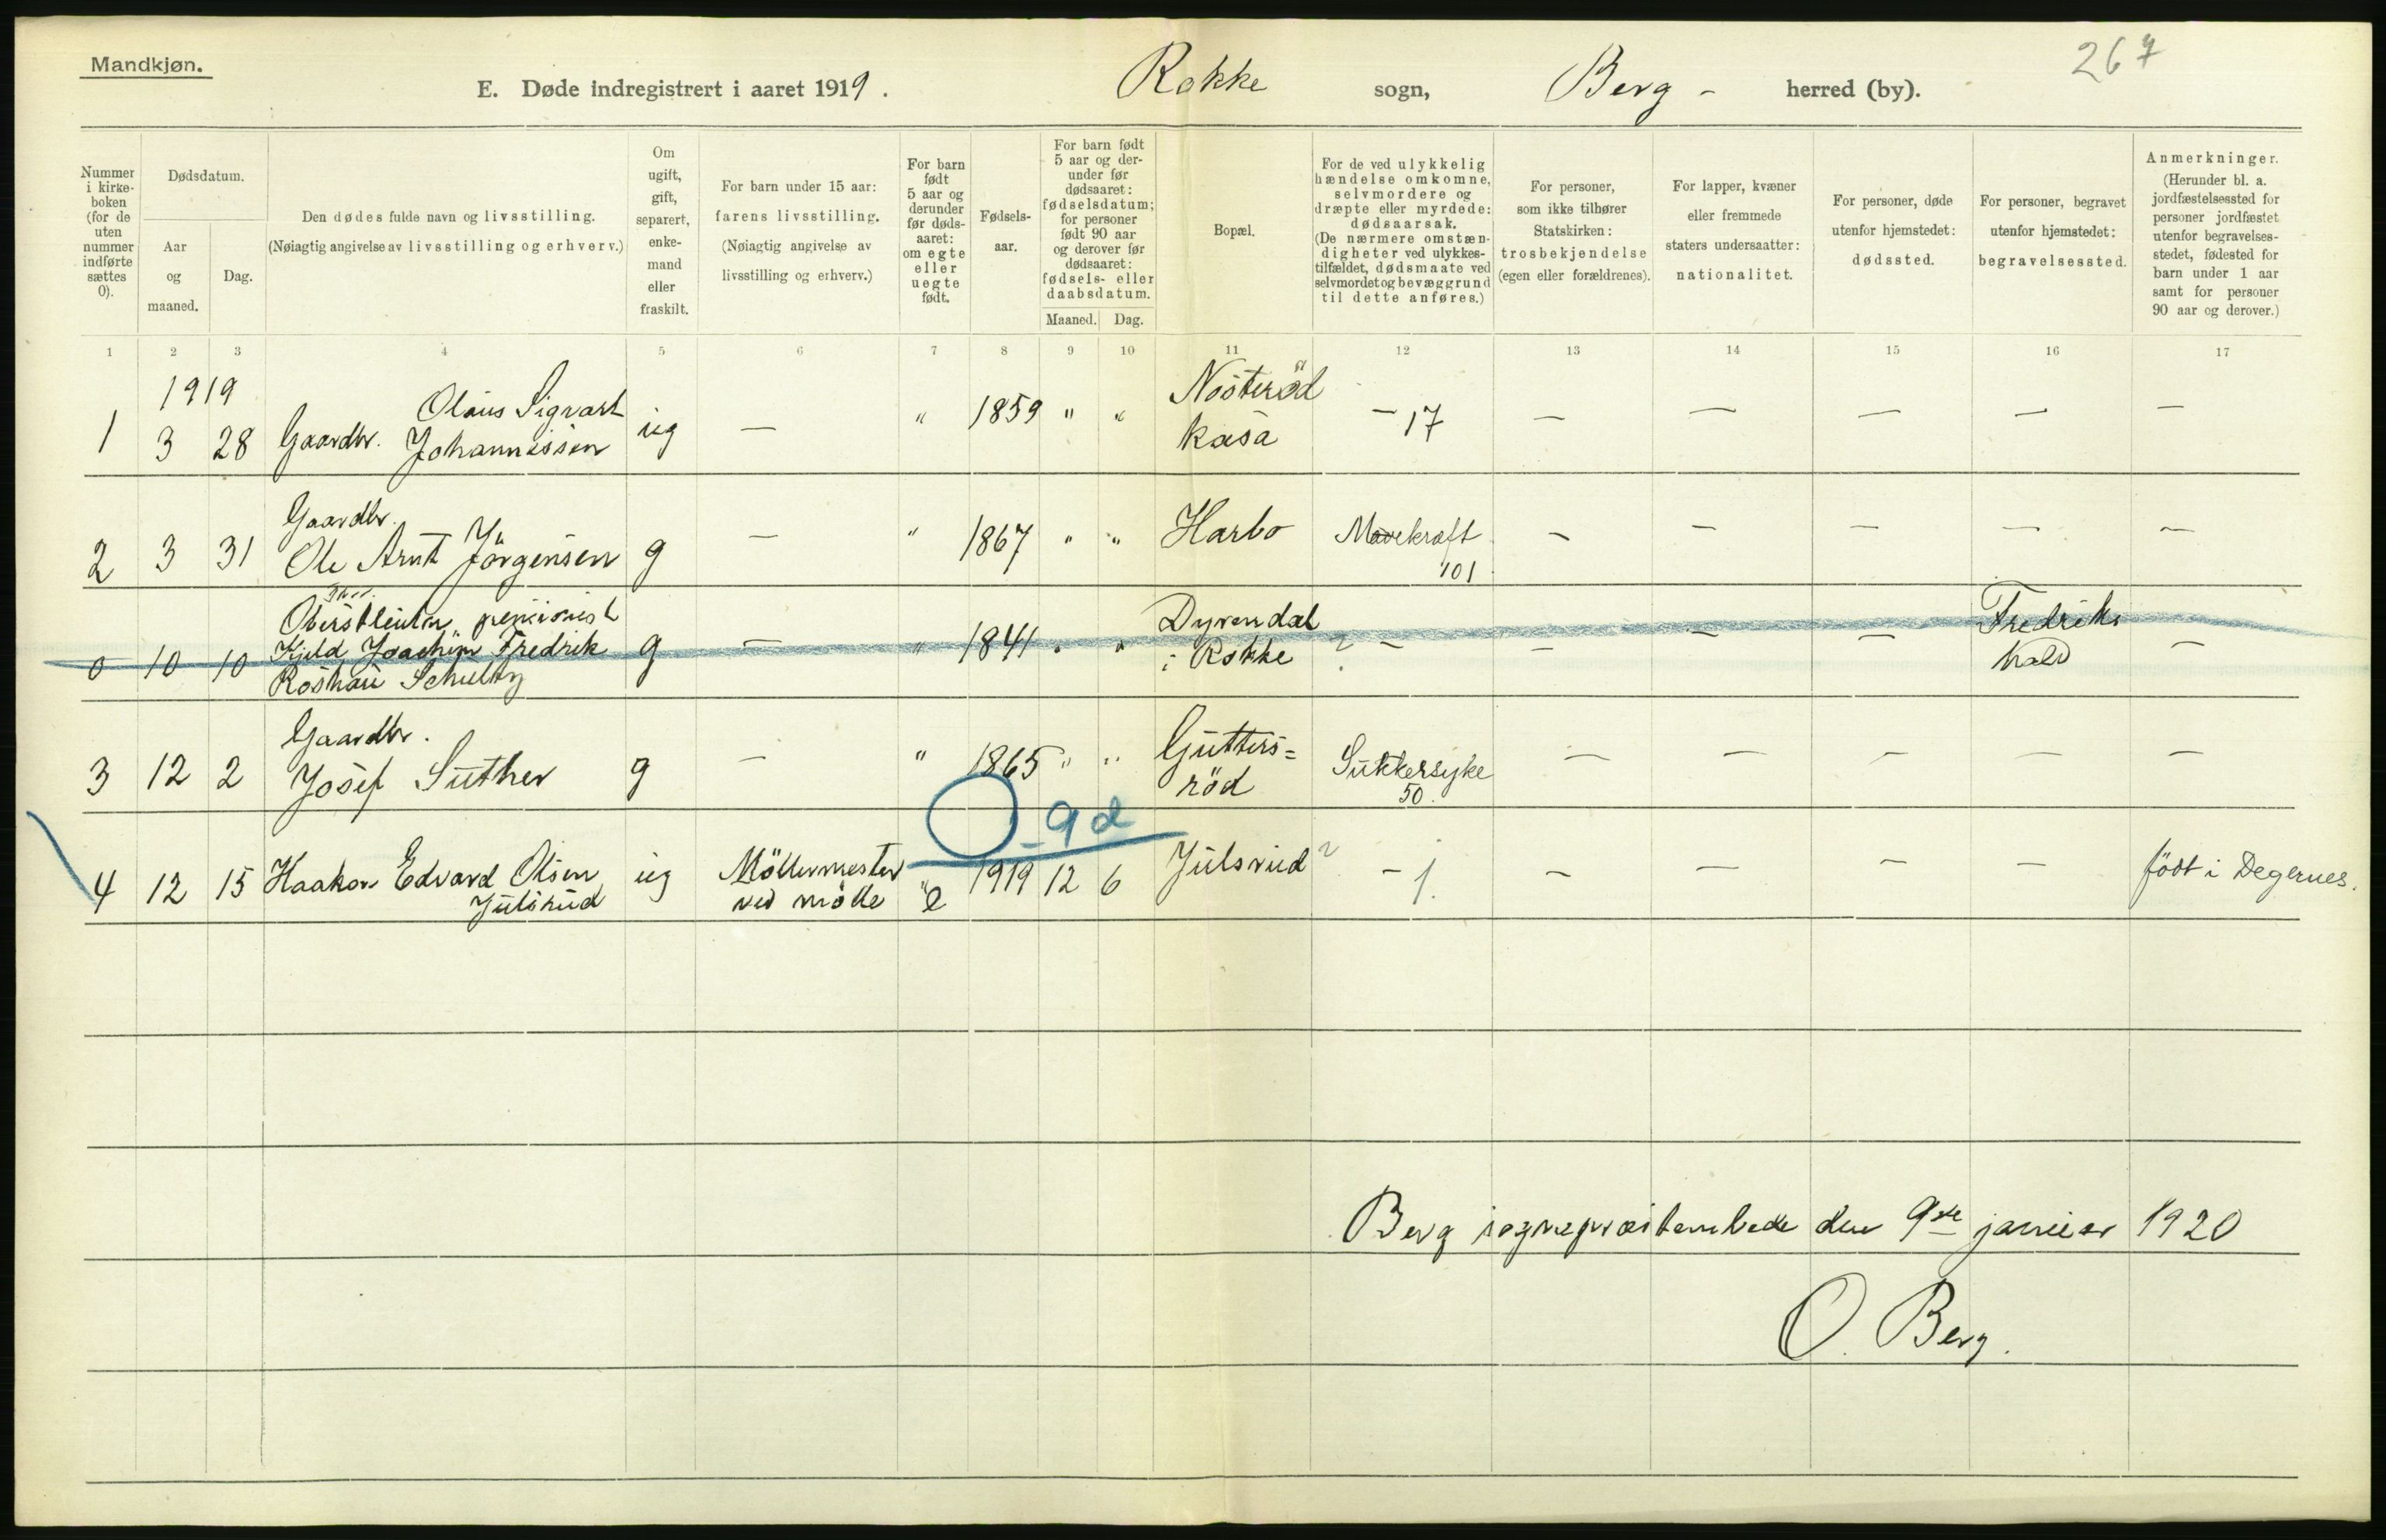 Mandkjøn.
267
E. Døde indregistrert i aaret 1919. Rokke sogn, Berg - herred (by).
Nummer i kirkeboken (for de uten nummer indførte sættes 0).
Dødsdatum.
Aar og maaned.
Dag.
Den dødes fulde navn og livsstilling.
(Nøiagtig angivelse av livsstilling og erhverv.)
Om ugift, gift, separert, enkemand eller fraskilt.
For barn under 15 aar: farens livsstilling.
(Nøiagtig angivelse av livsstilling og erhverv.)
For barn født 5 aar og derunder før dødsaaret: om egte eller uegte født.
Fødselsaar.
For barn født 5 aar og derunder før dødsaaret: fødselsdatum; for personer født 90 aar og derover før dødsaaret: fødsels- eller daabsdatum.
Maaned. Dag.
Bopæl.
For de ved ulykkelig hændelse omkomne, selvmordere og dræpte eller myrdede: dødsaarsak.
(De nærmere omstændigheter ved ulykkestilfældet, dødsmaate ved selvmordet og bevæggrund til dette anføres.)
For personer, som ikke tilhører Statskirken: trosbekjendelse (egen eller forældrenes).
For lapper, kvæner eller fremmede staters undersaatter: nationalitet.
For personer, døde utenfor hjemstedet: dødssted.
For personer, begravet utenfor hjemstedet: begravelsessted.
Anmerkninger.
(Herunder bl. a. jordfæstelsessted for personer jordfæstet utenfor begravelsesstedet, fødested for barn under 1 aar samt for personer 90 aar og derover.)
1 2 3 4 5 6 7 8 9 10 11 12 13 14 15 16 17
1919
1 3 28 Gaardbr. Olaus Sigvart Johannessen ug — " 1859 " " Nösteröd kasa — 17 — — — — —
2 3 31 Gaardbr. Ole Arnt Jörgensen g — " 1867 " " Harbo Mavekræft 101 — — — — —
0 10 10 Oberstleutn. pensionist Kjeld Joachim Fredrik Roshau Schultz g — " 1841 " " Dyrendal i Rokke ? — — — — Fredrikshald —
3 12 2 Gaardbr. Josef Suther g — " 1865 " " Guttersröd Sukkersyke 50. — — — — —
9 d
4 12 15 Haakon Edvard Olsen Julsrud ug Möllermester ved mölle " e 1919 12 6 Julsrud ? — 1. — — — — födt i Degernes.
Berg sogneprestembede den 9de januar 1920
O. Berg.